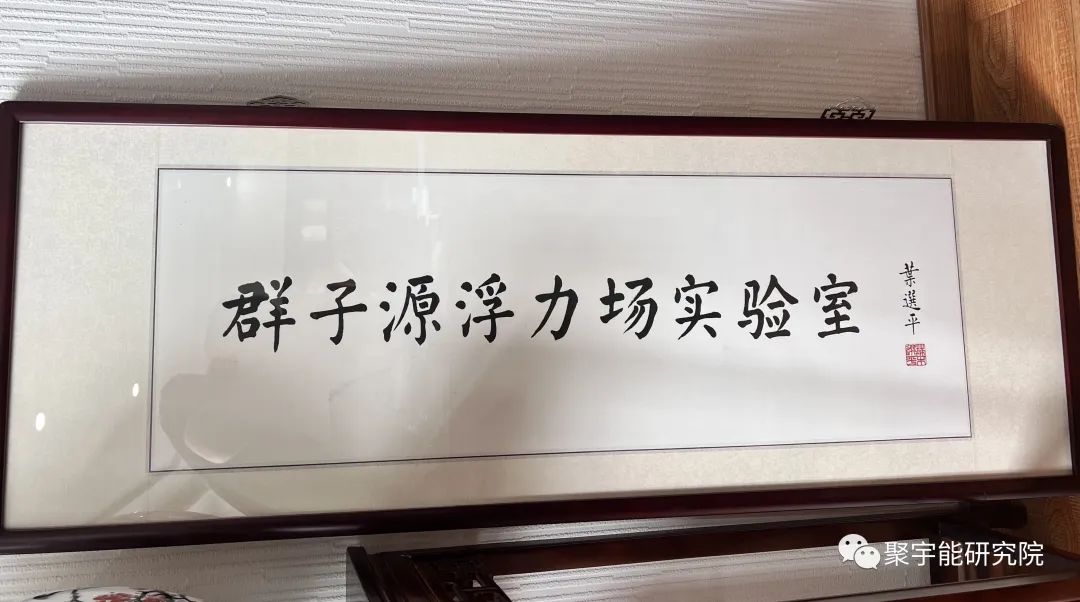 群子源浮力场实验室
葉選平
聚宇能研究院